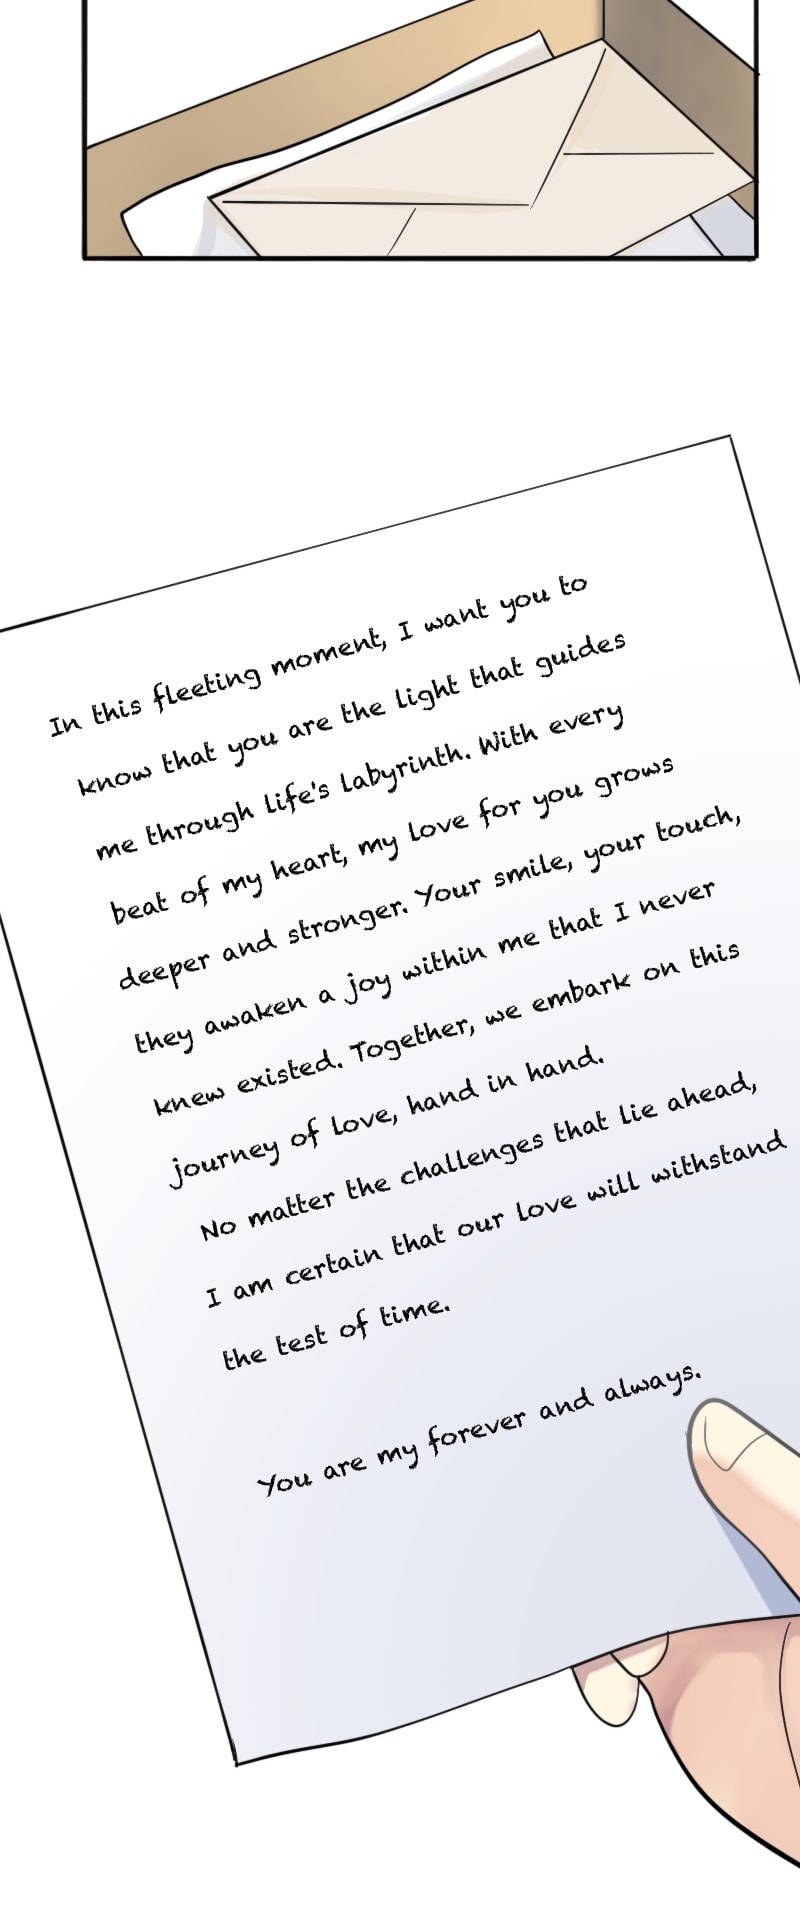 In this fleeting moment, I want you to
know that you are the light that guides
me through life's labyrinth. With every
beat of my heart, my love for you grows
deeper and stronger. Your smile, your touch,
they awaken a joy within me that I never
knew existed. Together, we embark on this
journey of love, hand in hand.
No matter the challenges that lie ahead,
I am certain that our love will withstand
the test of time.
You are my forever and always.